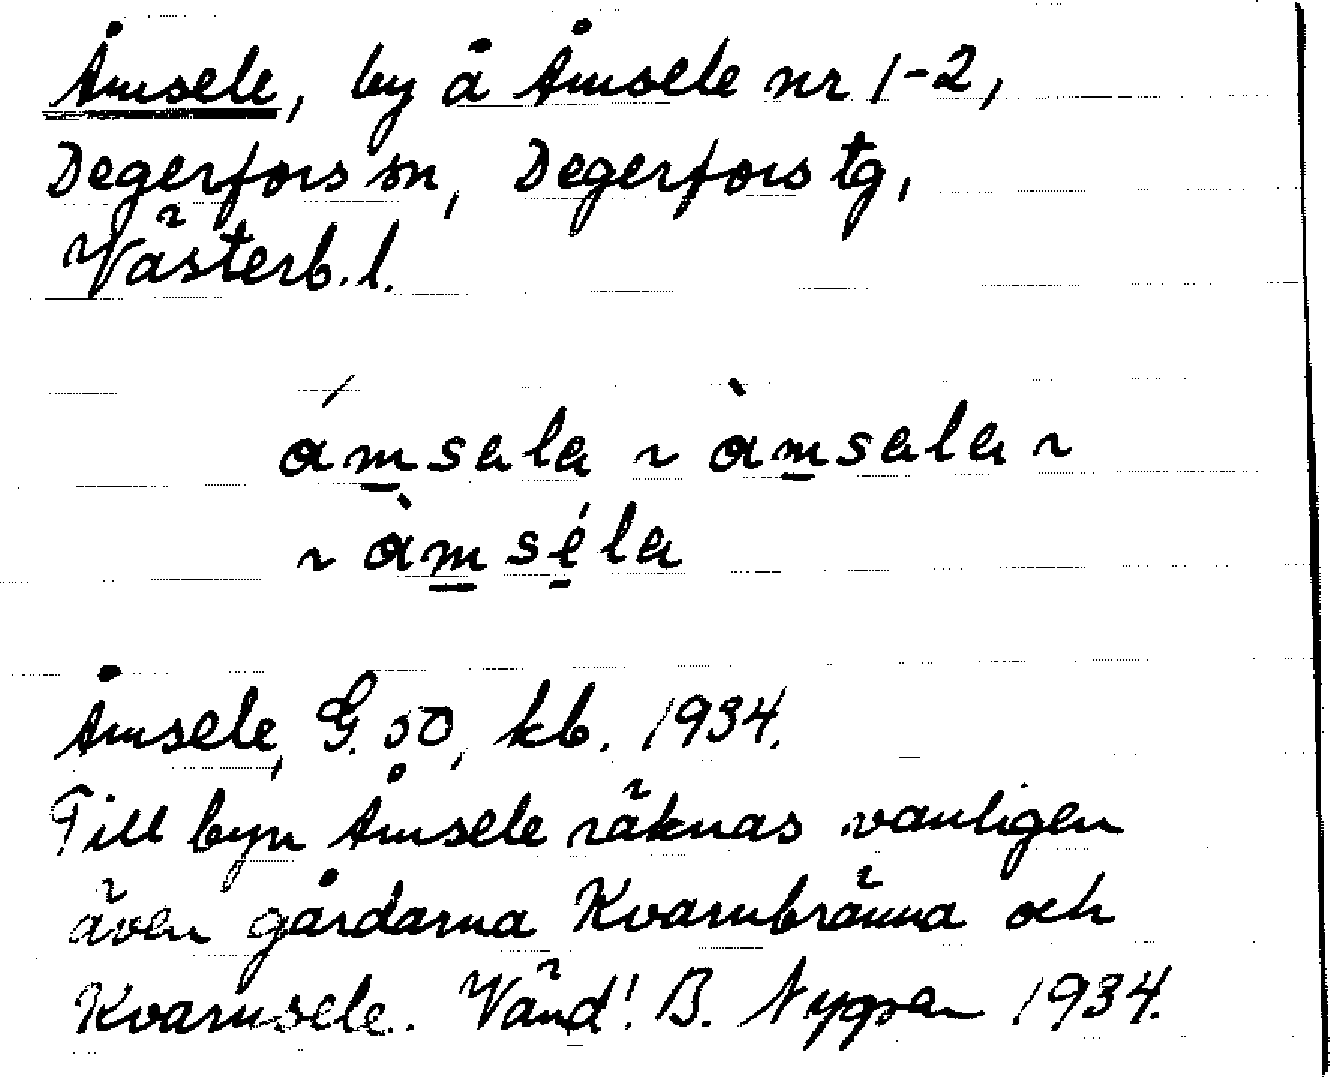 Åmsele, by å Åmsele nr 1-2,
Degerfors sn, Degerfors tg,
Västerb. l.
ámsala ~ àmsala ~
~ àmséla
Åmsele, G. 50, kb. 1934.
Till byn Åmsele räknas vanligen
även gårdarna Kvarnbränna och
Kvarnsele. Vänd! B. Nygren 1934.